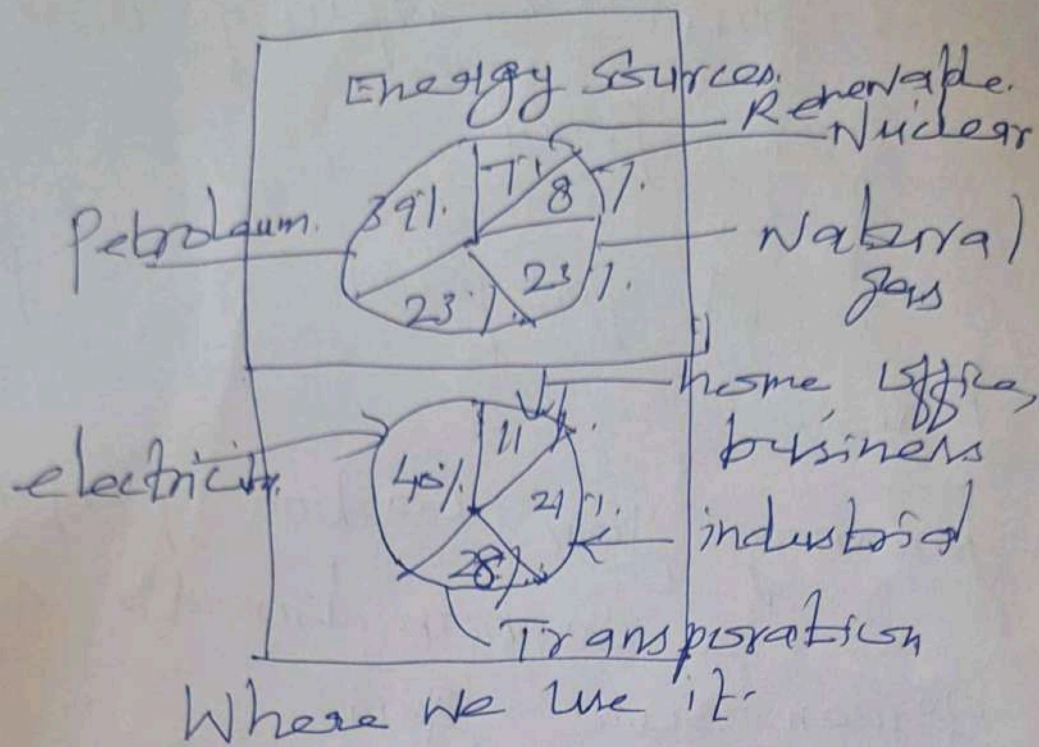 Energy Sources.
Renewable.
Nuclear
7%
8%
39%
Petroleum.
Natural
gas
23%
23%
home office,
business
electricity.
11%
40%
21%
industrial
28%
Transporation
Where we use it.